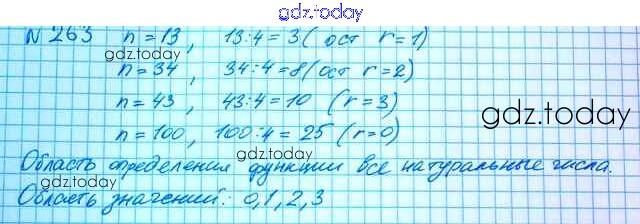 gdz.today
N 263 n = 13, 13:4 = 3 (ост r=1)
gdz.today
n = 34, 34:4 = 8 (ост r=2)
n = 43, 43:4 = 10 (r=3)
gdz.today
n = 100, 100:4 = 25 (r=0)
gdz.today
Область определения функции все натуральные числа.
Область значений: 0,1,2,3